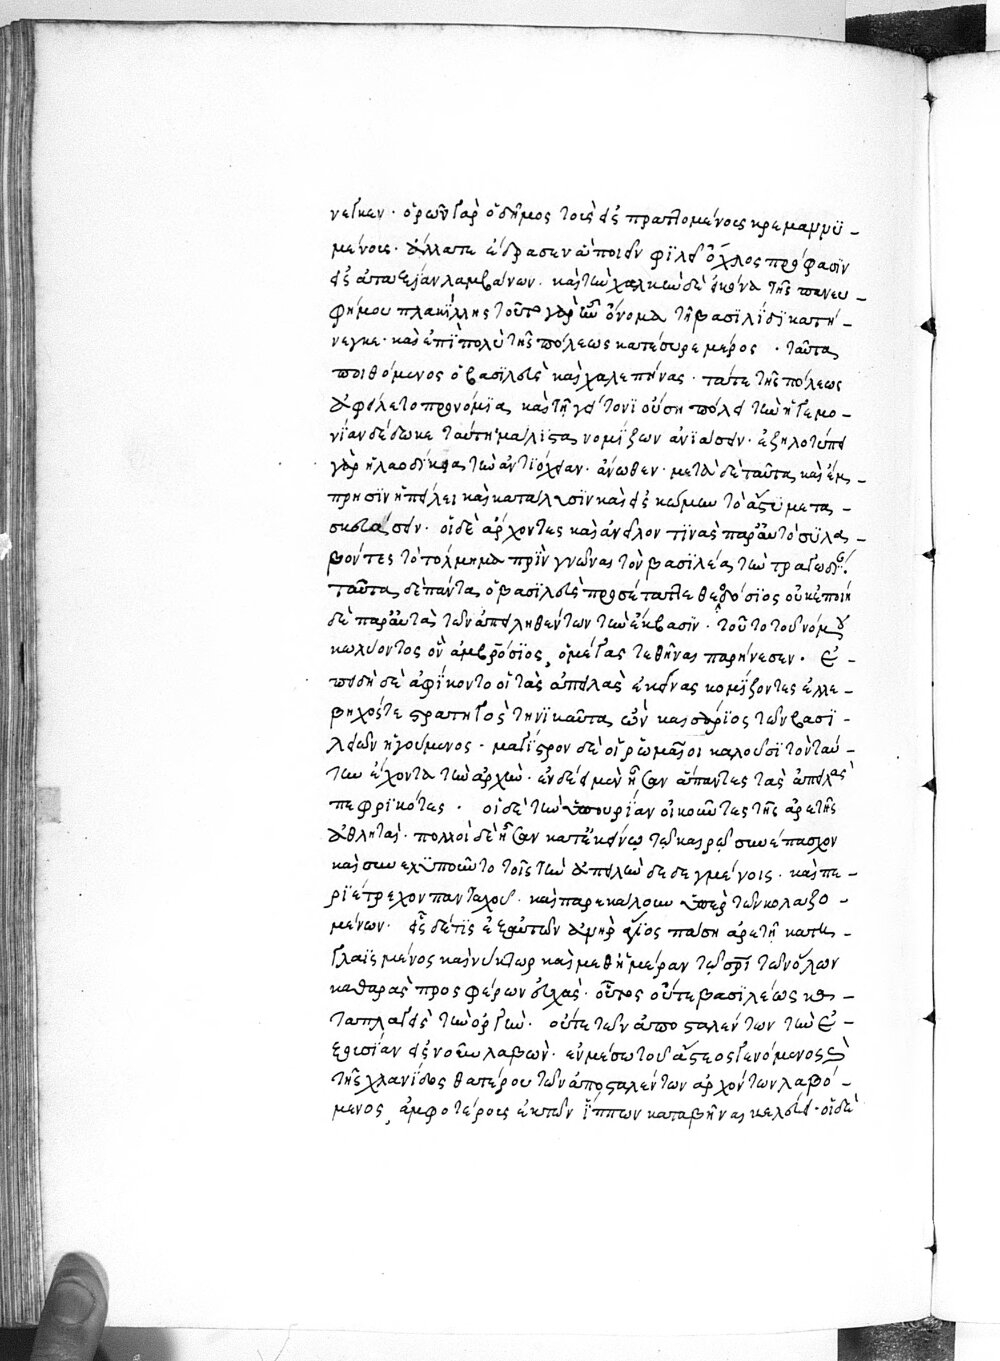 νεγκεν · ὁρῶν γὰρ ὁ δῆμος τοῖς εἰσπραττομένοις κρεμαννϋ -
μένοις · ἄλλά τε ἔδρασεν ἃ ποιεῖν φϊλεῖ ὄχλος πρόφασϊν
εἰς ἀταξίαν λαμβάνων · καὶ τὴν χαλκῆν δὲ εἰκόνα τῆς πανευ -
φήμου πλακΐλλης τοῦτο γὰρ ἦν ὄνομα τῆ βασιλΐδϊ κατή -
νεγκε · καὶ ἐπϊ πολὺ τῆς πόλεως κατέσυρε μέρος · ταῦτα
πυθόμενος ὁ βασιλεὺς καὶ χαλεπήνας · τά τε τῆς πόλεως
ἀφείλετο προνόμϊα, καὶ τῆ γείτονϊ οὔση πόλει τὴν ἡγεμο -
νΐαν δέδωκε ταύτη μάλιϛα νομΐζων ἀνιάσειν · ἐζηλοτύπει
γὰρ ἡ λαοδΐκεια τὴν ἀντϊόχειαν · ἄνωθεν · μετὰ δὲ ταῦτα, καὶ ἐμ -
πρησϊν ἠπείλει καὶ κατάλυσϊν καὶ εἰς κώμην τὸ ἄϛϋ μετα -
σκευάσειν · οἱ δὲ ἄρχοντες καὶ ἀνεῖλον τϊνὰς παρ' αὐτὸ συλλα -
βόντες τὸ τόλμημα πρὶν γνῶναι τὸν βασϊλέα, τὴν τραγωδΐαν.
ταῦτα δὲ πάντα ὁ βασϊλεὺς προσέταττε θεοδόσϊος οὐκ ἐποϊή
δὲ παρ' αὐτὰ τῶν ἀπειληθέντων τὴν ἔκβασϊν · τοῦτο τοῦ νόμου
κωλύοντος ὃν ἀμβρόσϊος, ὁ μέγας τεθῆναι παρήνεσεν · ἐ -
πειδὴ δὲ ἀφΐκοντο οἱ τὰς ἀπειλὰς ἐκείνας κομΐζοντες ἐλλε -
βηχός τε ϛρατηγὸς τηνϊκαῦτα, ὢν καὶ καισάρϊος τῶν βασϊ -
λείων ἡγούμενος · μάγϊϛρον δὲ οἱ ῥωμαῖοι καλοῦσϊ τὸν ταύ -
την ἔχοντα τὴν ἀρχὴν · ἐν δέει μὲν ἦσαν ἅπαντες τὰς ἀπειλὰς
πεφρϊκότες · οἱ δὲ τὴν ὑπουρΐαν οἰκοῦντες τῆς ἀρετῆς
ἀθληταὶ · πολλοὶ δὲ ἦσαν κατ' ἐκεῖνω τῶ καιρῶ συνέπασχον
καὶ συνεχῶς τοῖς τὴν ἀπειλὴν δεδεγμένοις · καὶ πε -
ρϊέτρεχον πανταχοῦ · καὶ παρεκάλουν ὑπὲρ τῶν κολαζο -
μένων · εἷς δέ τϊς ἐξ αὐτῶν ἀνὴρ ἅγϊος πάση ἀρετῆ κατη -
γλαϊσμένος καὶ νύκτωρ καὶ μεθ' ἡμέραν τῶ σρι τῶν ὅλων
καθαρὰς προσφέρων εὐχὰς · οὗτος οὔτε βασϊλέως κα -
ταπλαγεὶς τὴν ὀργὴν · οὔτε τῶν ἀποϛαλέντων τὴν ἐ -
ξουσίαν εἰς νοῦν λαβὼν · ἐν μέσω τοῦ ἄϛεος γενόμενος καὶ
τῆς χλανΐδος θατέρου τῶν ἀποϛαλέντων ἀρχόντων λαβό -
μενος, ἀμφοτέροις ἐκ τῶν ἵππων καταβῆναι κελεύει · οἱ δὲ